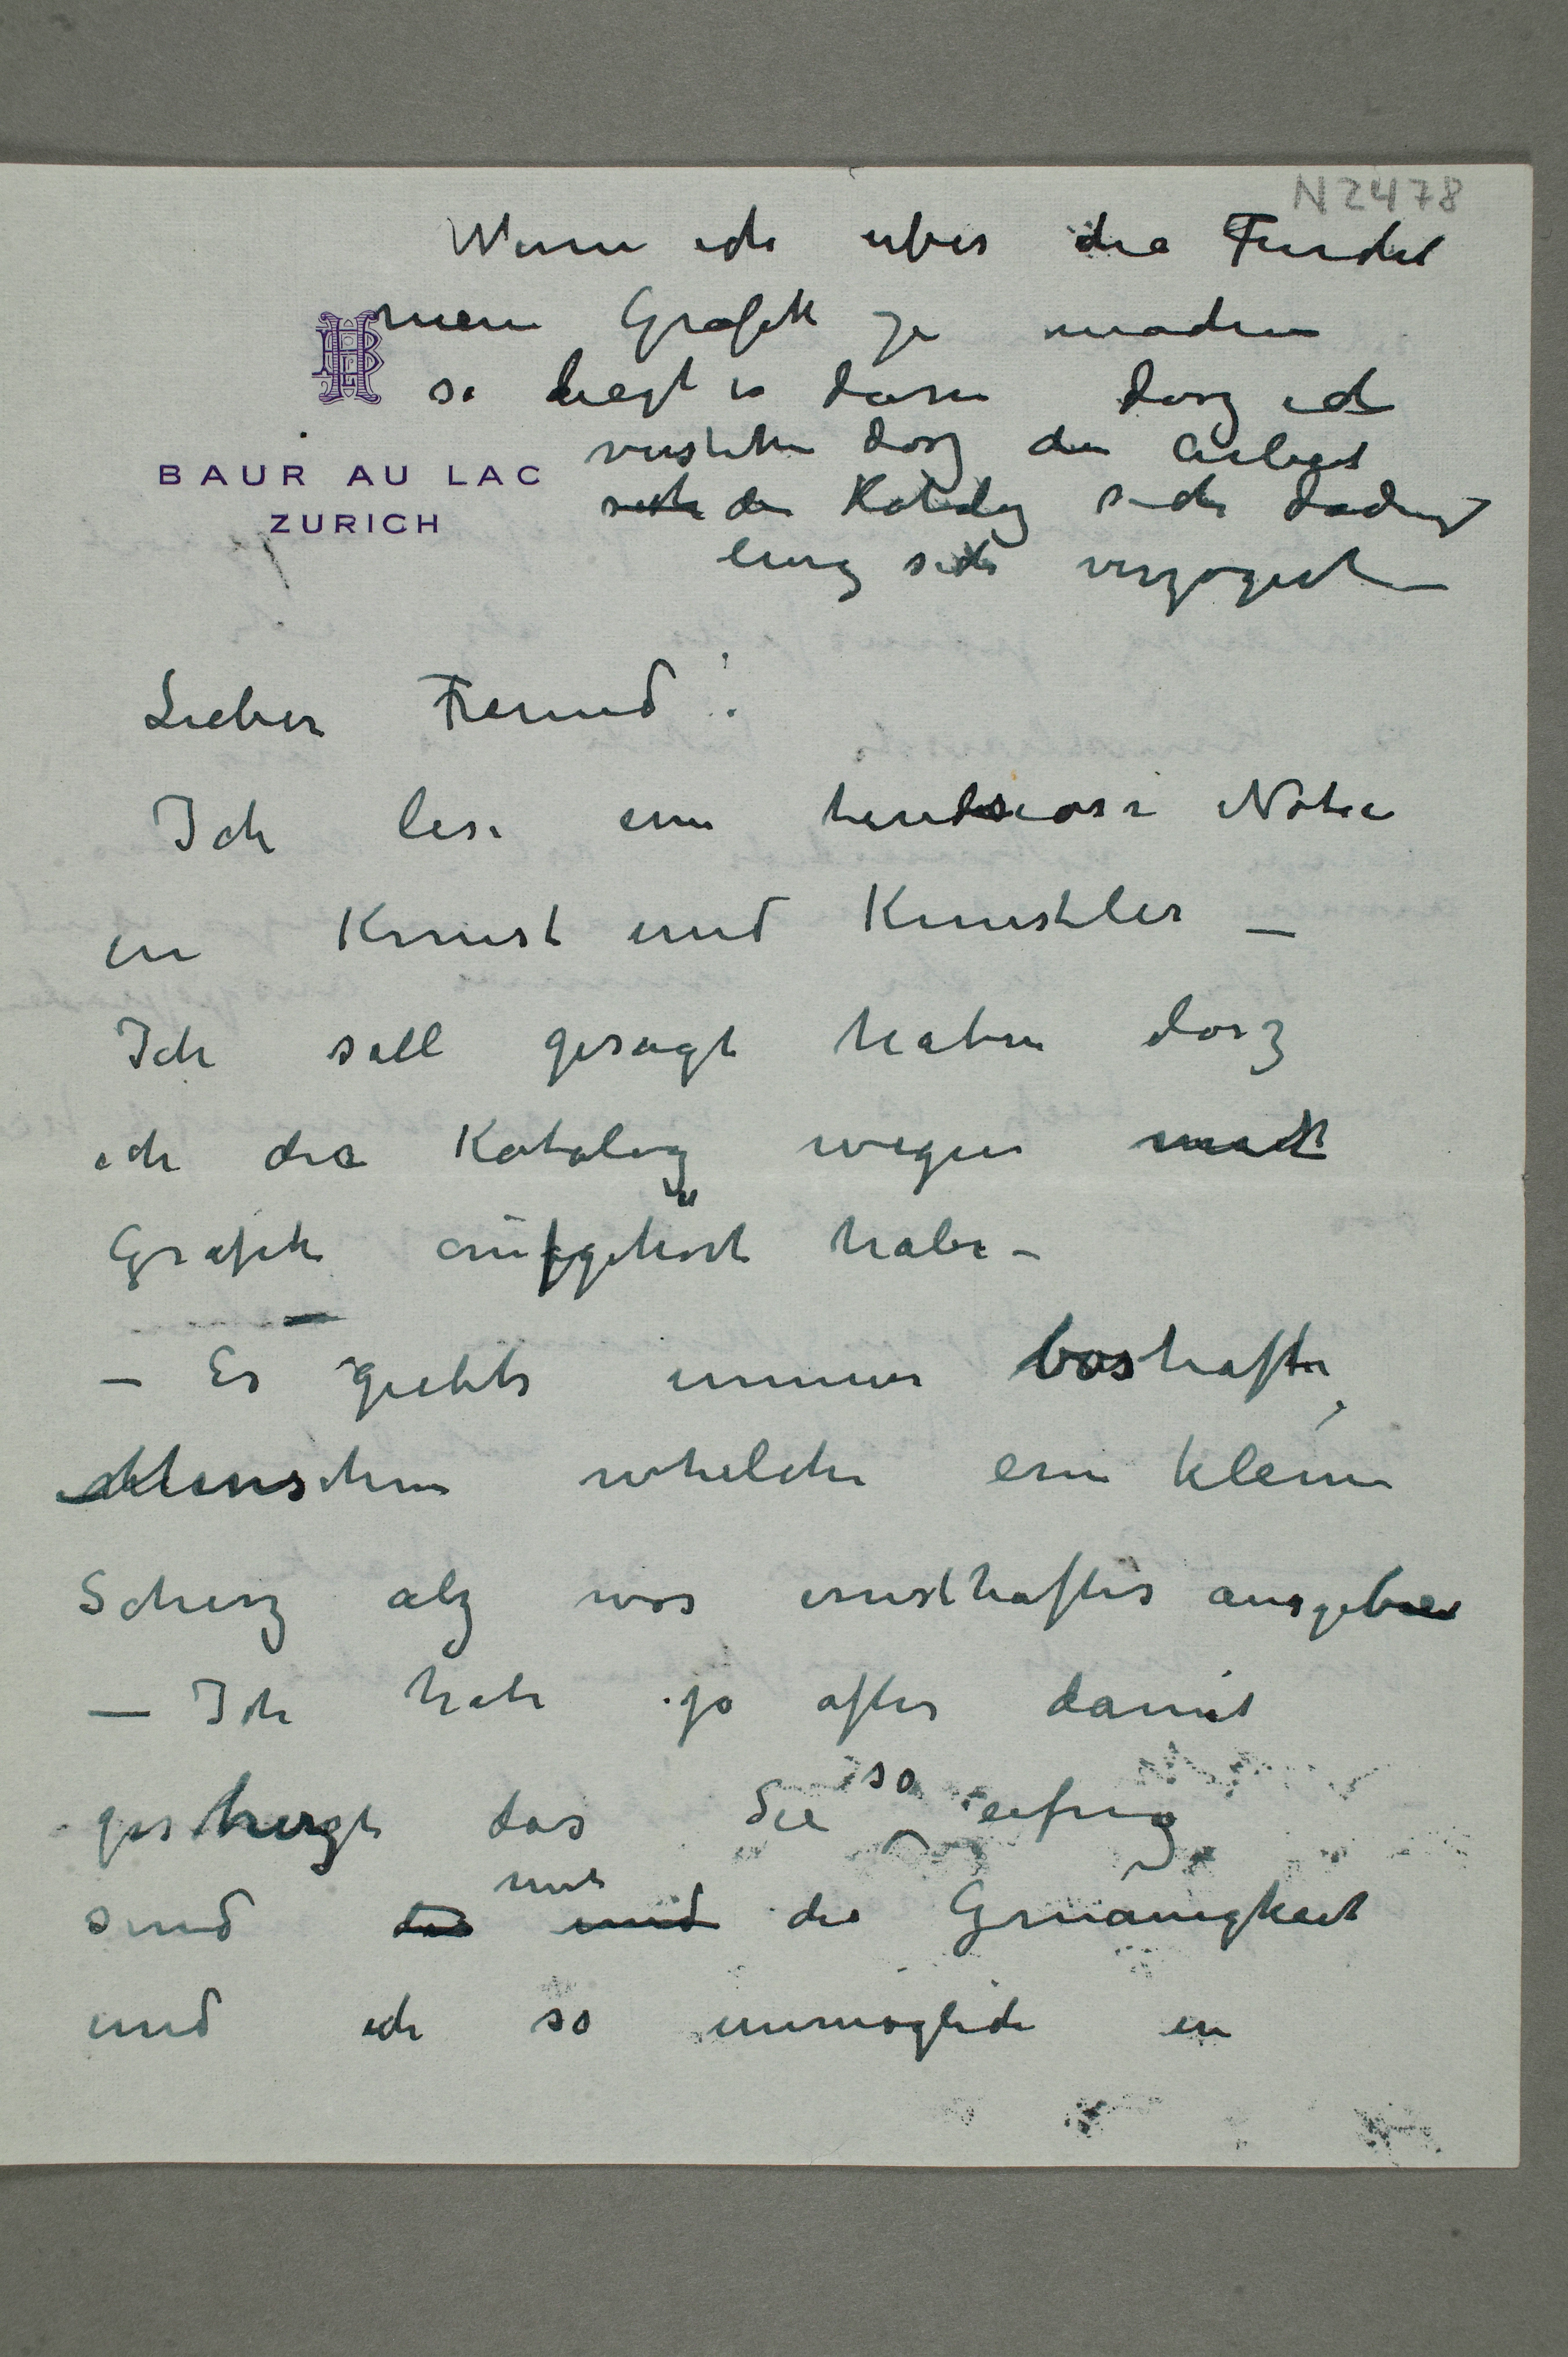 N 2478
Wenn ich über die Furcht
mein Grafik zu machen
so liegt es darin dasz ich
verstehe dasz die Arbeit
der Katalog sich dadurch
lang sich verzögert –
BAUR AU LAC
ZURICH
Lieber Freund!
Ich lese eine tendsiose Notie
in Kunst und Künstler –
Ich soll gesagt haben dasz
ich die Katalog wegen
Grafik aufgehört habe –
– Es giebts immer boshafte
Menschen whelche ein kleine
Scherz alz was ernsthaftes ausgeben
– Ich habe ja ofter damit
gescherzt das Sie so eifrig
sind mit die Gnauigkeit
und ich so unmögliche in